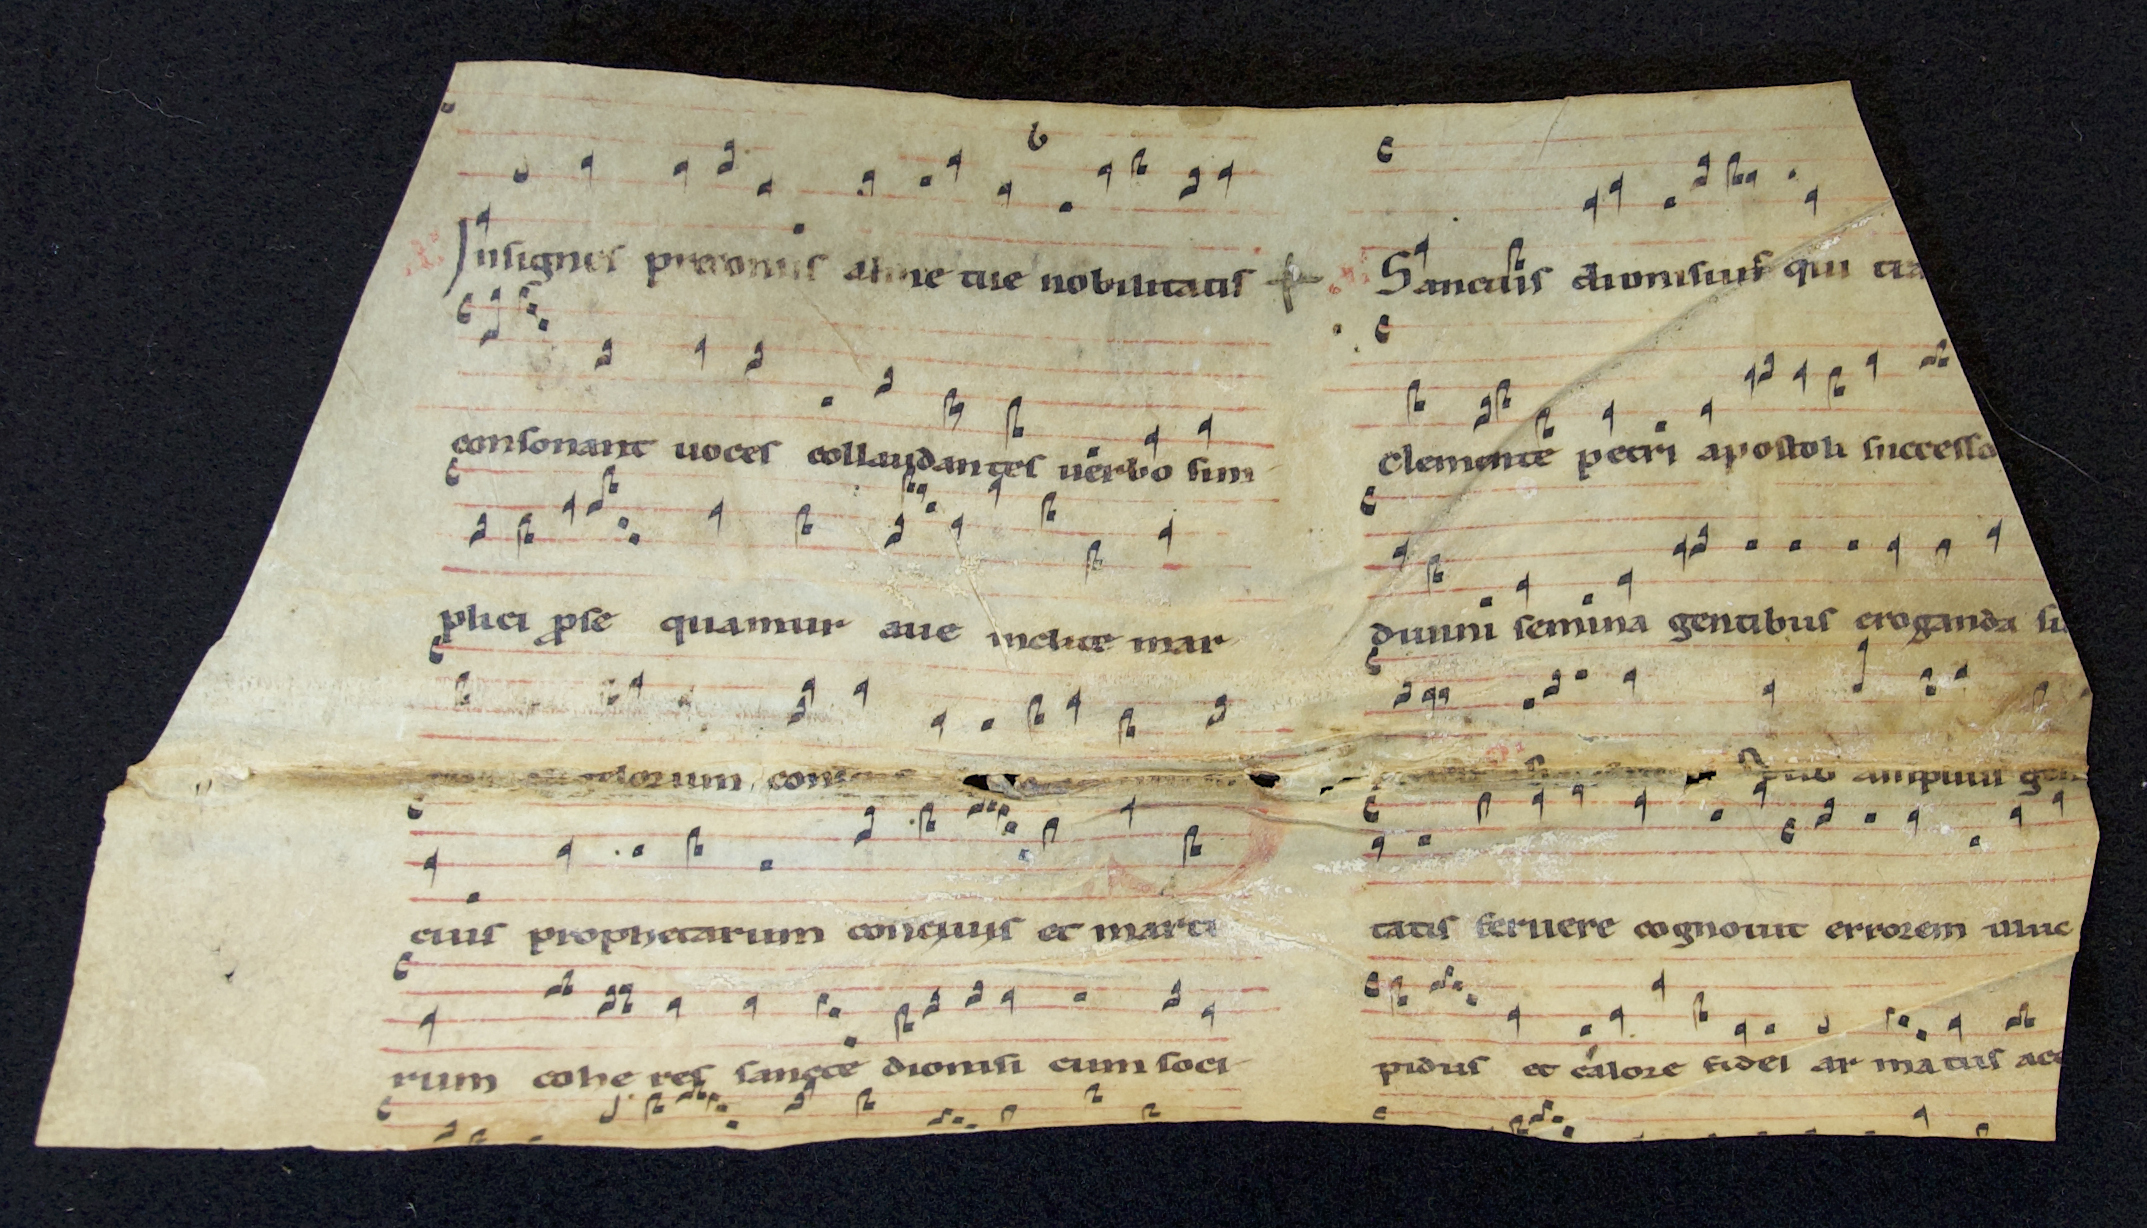 Insignes preconiis alme tue nobilitatis
consonant uoces collaudantes uerbo sim
plici pse quamur aue inclite mar
elorum conso
ciuis prophetarum conciuis et marti
rum cohe res sancte dionisi cum soci
Sanctus dionisius qui tra
clemente petri apostoli successo
diuini semina gentibus eroganda su
Quo amplius gen
tatis feruere cognouit errorem illuc
pidus et calore fidei ar matus acc